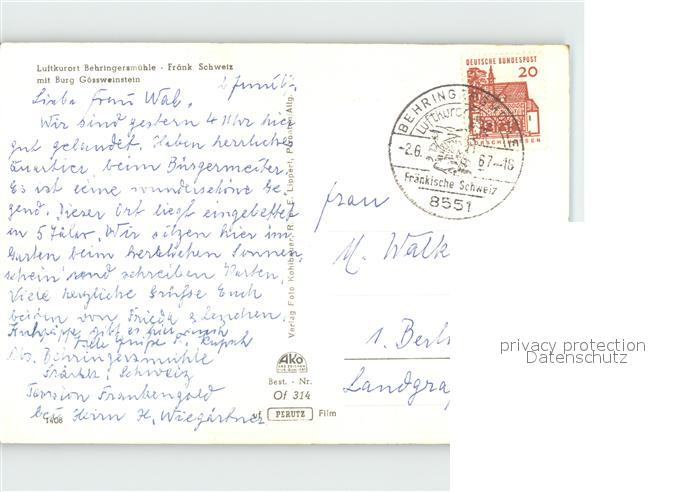 Luftkurort Behringersmühle - Fränk. Schweiz
mit Burg Gössweinstein
Liebe Frau Wal.
Wir sind gestern 4 Uhr hier
gut gelandet. Haben herrliches
Quartier beim Bürgermeister
Es ist eine wunderschöne Ge-
gend. Dieser Ort liegt eingebettet
in 5 Täler. Wir sitzen hier im
Garten beim herrlichen Sonnen-
schein und schreiben Karten.
Viele herzliche Grüsse Euch
beiden von Frieda
gibt es hier auch
Abs. Behringersmühle
Fränk. Schweiz
Pension Frankengold
bei Herrn H. Wiegärtner
1408
Verlag Foto Kohlbauer, R. E. Lippert,
AKO
Best.-Nr.
Of 314
auf PERUTZ Film
DEUTSCHE BUNDESPOST
20
BEHRINGERSMÜHLE
Luftkurort
-2.6. 67-18
Fränkische Schweiz
8551
Frau
M. Walk
1. Berl
Landgra
privacy protection
Datenschutz